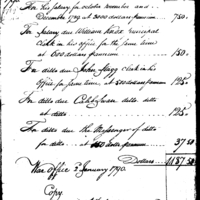 For his salary for october november and
December 1789 at 3000 dollars p annum 750.
For Salary due William Knox principal
Clerk in his office for the same time
at 600 dollars p annum 150.
For ditto due John Stagg Clerk in his
office for same time, at 500 dollars p annum 125.
For ditto due ditto ditto
at ditto 125.
For ditto due the Messenger of ditto
for ditto at 150 dolls p annum 37 50
Dollars 1187.50
War Office 2 January 1790.
Copy